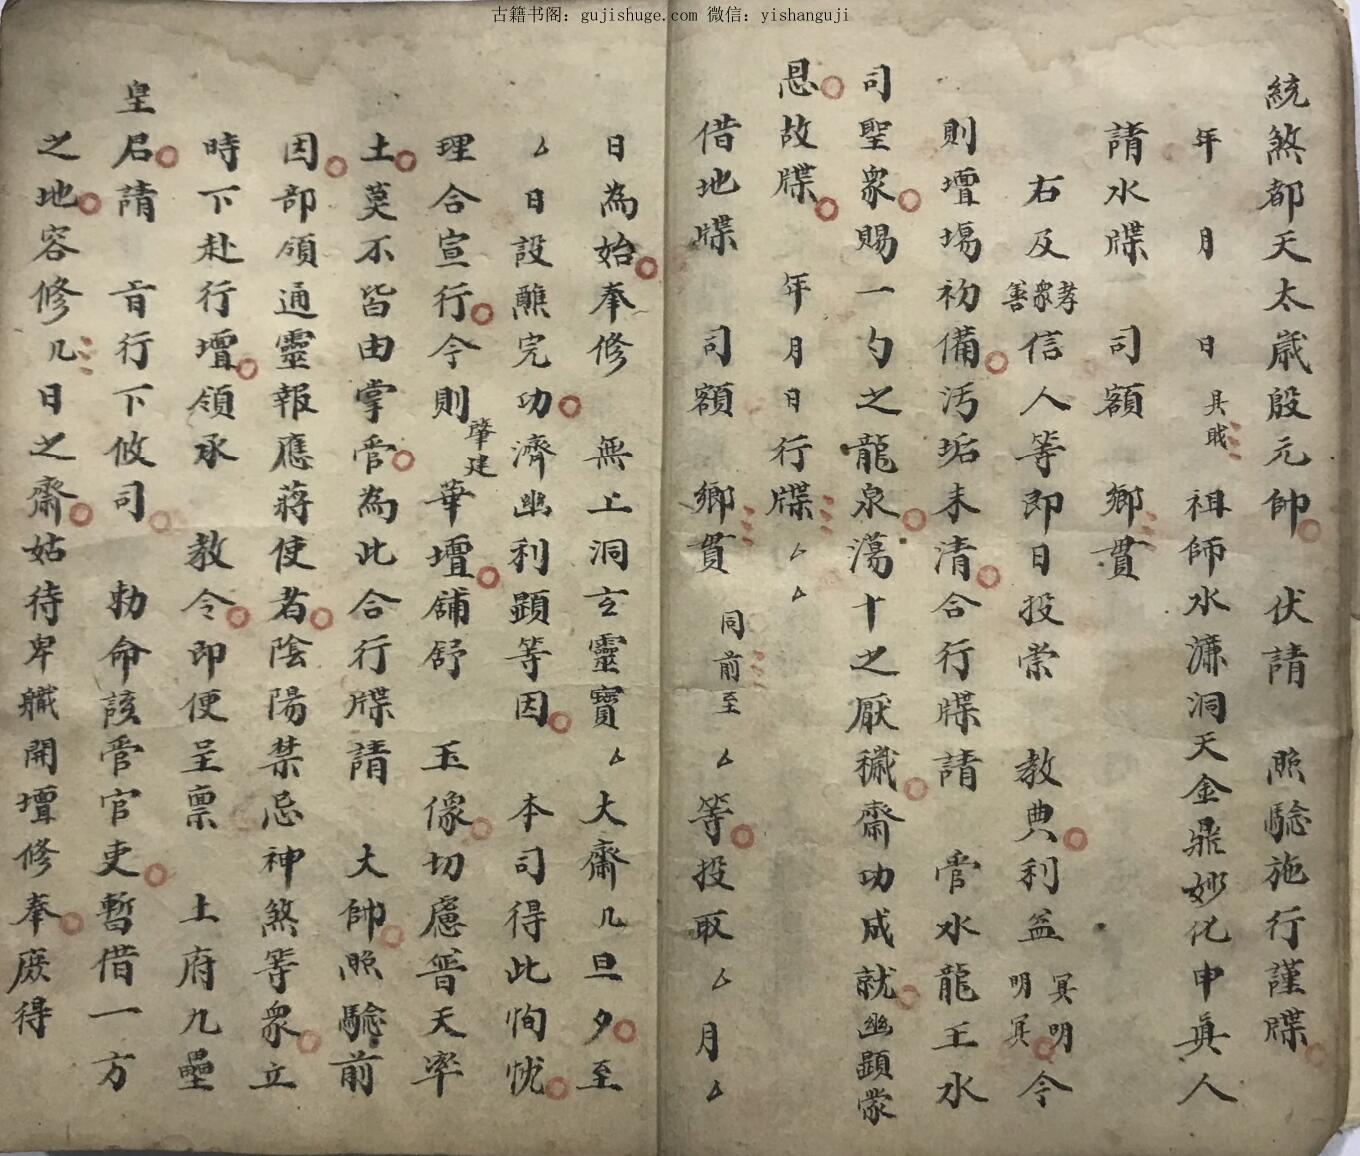 古籍书阁：gujishuge.com 微信：yishanguji
統煞都天太歲殷元帥 伏請 照驗施行謹牒
年 月 日 具戝 祖師水濂洞天金鼎妙化申真人
請水牒 司額 鄉貫
右及孝眾善信人等即日投崇 教典利益冥明明冥今
則壇場初備污垢未清合行牒請 管水龍王水
司聖衆賜一勺之龍泉蕩十之厭穢齋功成就幽顕蒙
恩故牒 年月日行牒厶厶
借地牒 司額 鄉貫 同前至 厶等投取厶月厶
日為始奉修 無上洞玄靈寶厶大齋几旦夕至
厶日設醮完功濟幽利顕等因 本司得此恂忱
理合宣行今則肇建華壇舖舒 玉像切慮普天率
土莫不皆由掌管為此合行牒請 大帥照驗前
因部領通靈報應蔣使者陰陽禁忌神煞等衆立
時下赴行壇領承 教令即便呈禀 土府九壘
皇君請 旨行下攸司 勅命該管官吏暫借一方
之地容修几日之齋姑待卑職開壇修奉庶得